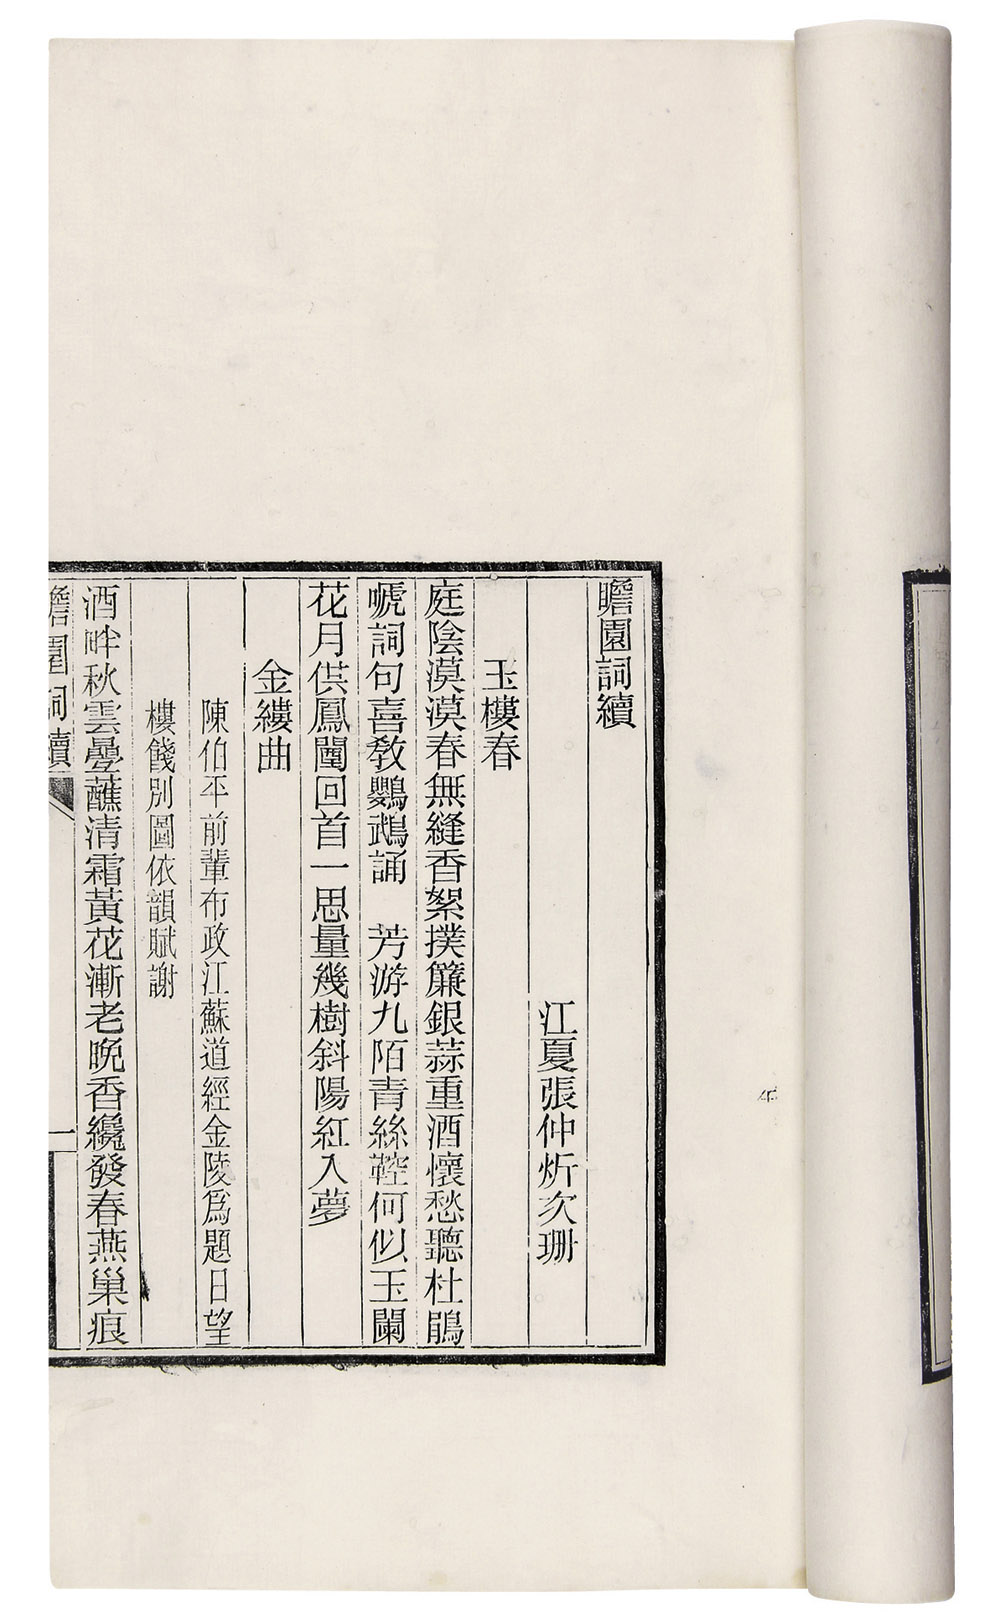 瞻園詞續
江夏張仲炘次珊
玉樓春
庭陰漠漠春無縫香絮撲簾銀蒜重酒懷愁聽杜鵑
嗁詞句喜教鸚鵡誦　芳游九陌青絲鞚何似玉闌
花月供鳳闈回首一思量幾樹斜陽紅入夢
金縷曲
陳伯平前輩布政江蘇道經金陵爲題日望
樓餞別圖依韻賦謝
酒畔秋雲疊蘸清霜黃花漸老晚香纔發春燕巢痕
瞻園詞續
一